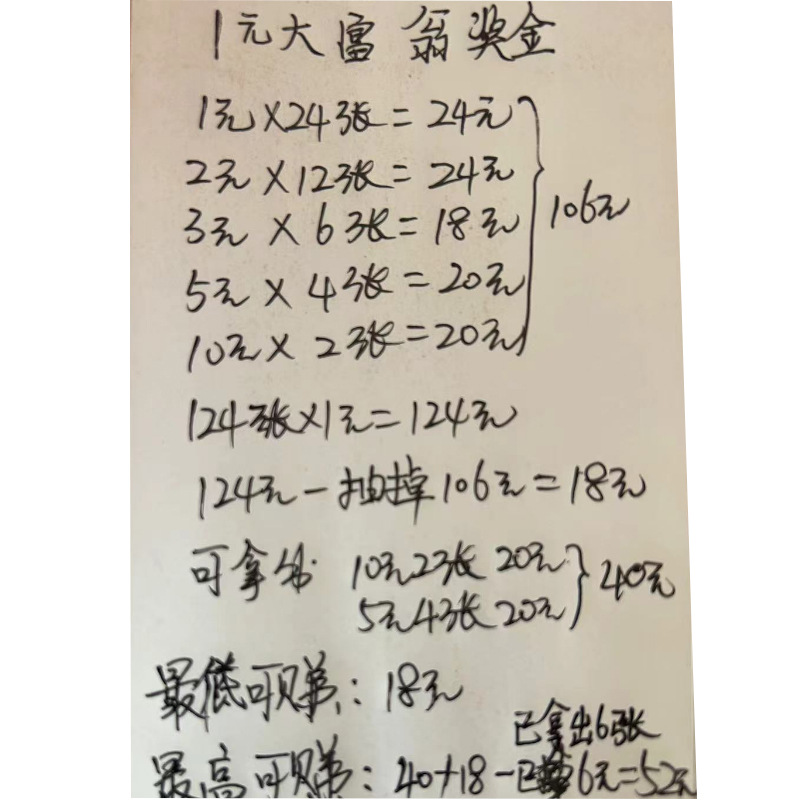 1元大富翁奖金
1元×24张=24元
2元×12张=24元
3元×6张=18元
5元×4张=20元
10元×2张=20元
106元
124张×1元=124元
124元-抽掉106元=18元
可拿出 10元2张 20元
5元4张 20元
40元
最低可赚:18元
已拿出6张
最高可赚:40+18-6元=52元